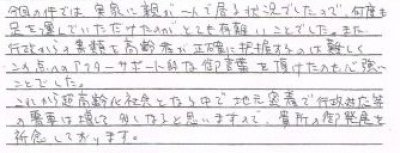 今回の件では、実家に親が一人で居る状況でしたので、何度も
足を運んでいただけたのがとても有難いことでした。また
行政からの書類を高齢者が正確に把握するのは難しく
この点へのアフターサポート的な御言葉を頂けたのも心強い
ことでした。
これから超高齢化社会となる中で地元密着で行政対応等
の事は増して多しなると思いますので、貴所の御発展を
祈念しております。